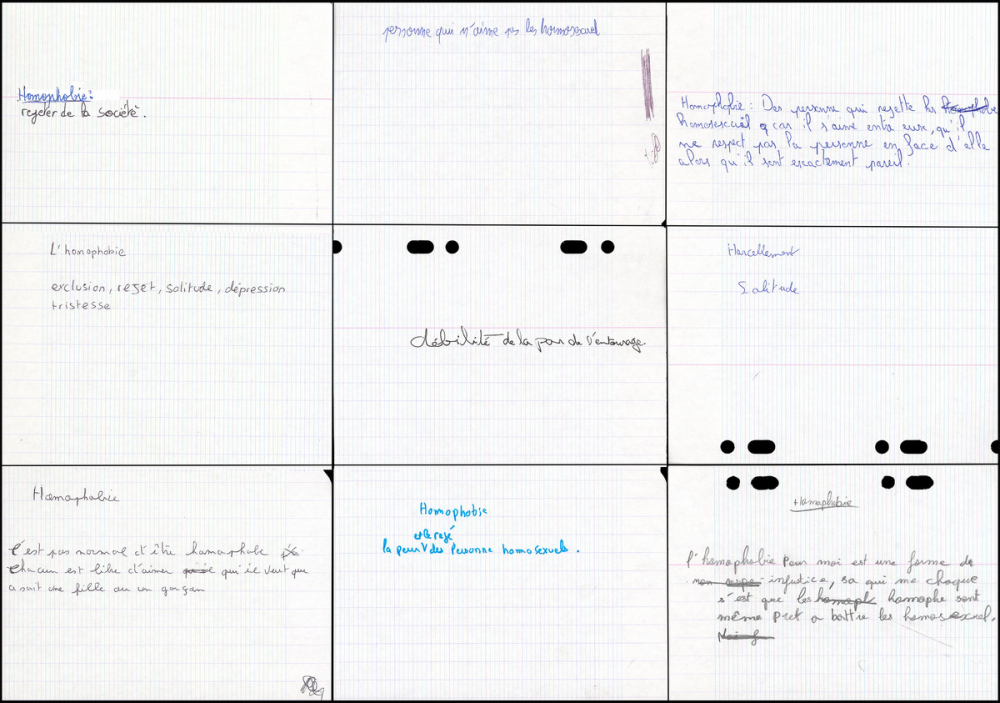 Homophobie :
rejeter de la société.
personne qui n'aime pas les homosexuel
Homophobie : Des personne qui rejette les
homosexuel car il s'aime entre eux, qu'il
ne respect pas la personne en face d'elle
alors qu'il sont exactement pareil.
L'homophobie
exclusion, rejet, solitude, dépression
tristesse
débilité de la par de l'entourage.
Harcellement
Solitude
Homophobie
C'est pas normal d'être homophobe
Chacun est libre d'aimer qui il veut que
ce soit une fille ou un garçon
Homophobie
et le rejé
la peur des Personne homosexuels.
Homophobie
l'homophobie Pour moi est une forme de
injustice, sa qui me choque
s'est que les homophe sont
même pret a battre les homosexuel.